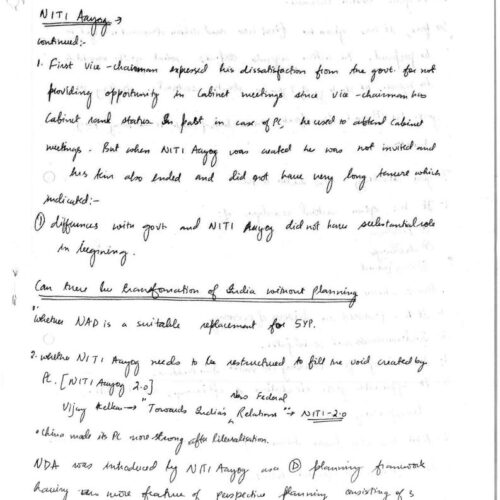 NITI Aayog →
continued:-
1. First vice-chairman expressed his dissatisfaction from the govt. for not
providing opportunity in Cabinet meetings since vice-chairman has
Cabinet rank status. In past in case of PC, he used to attend Cabinet
meetings. But when NITI Aayog was created he was not invited and
his term also ended and did not have very long tenure which
indicated:-
① differences with govt and NITI Aayog did not have substantial role
in begining.
Can there be transformation of India without planning
1. Whether NAD is a suitable replacement for 5YP.
2. whether NITI Aayog needs to be restructured to fill the void created by
PC. [NITI Aayog 2.0]
Vijay Kelkar → "Towards India's New Federal Relations" → NITI-2.0
• China made its PC more strong after liberalisation.
NDA was introduced by NITI Aayog as a planning framework
having more feature of perspective planning consisting of 3